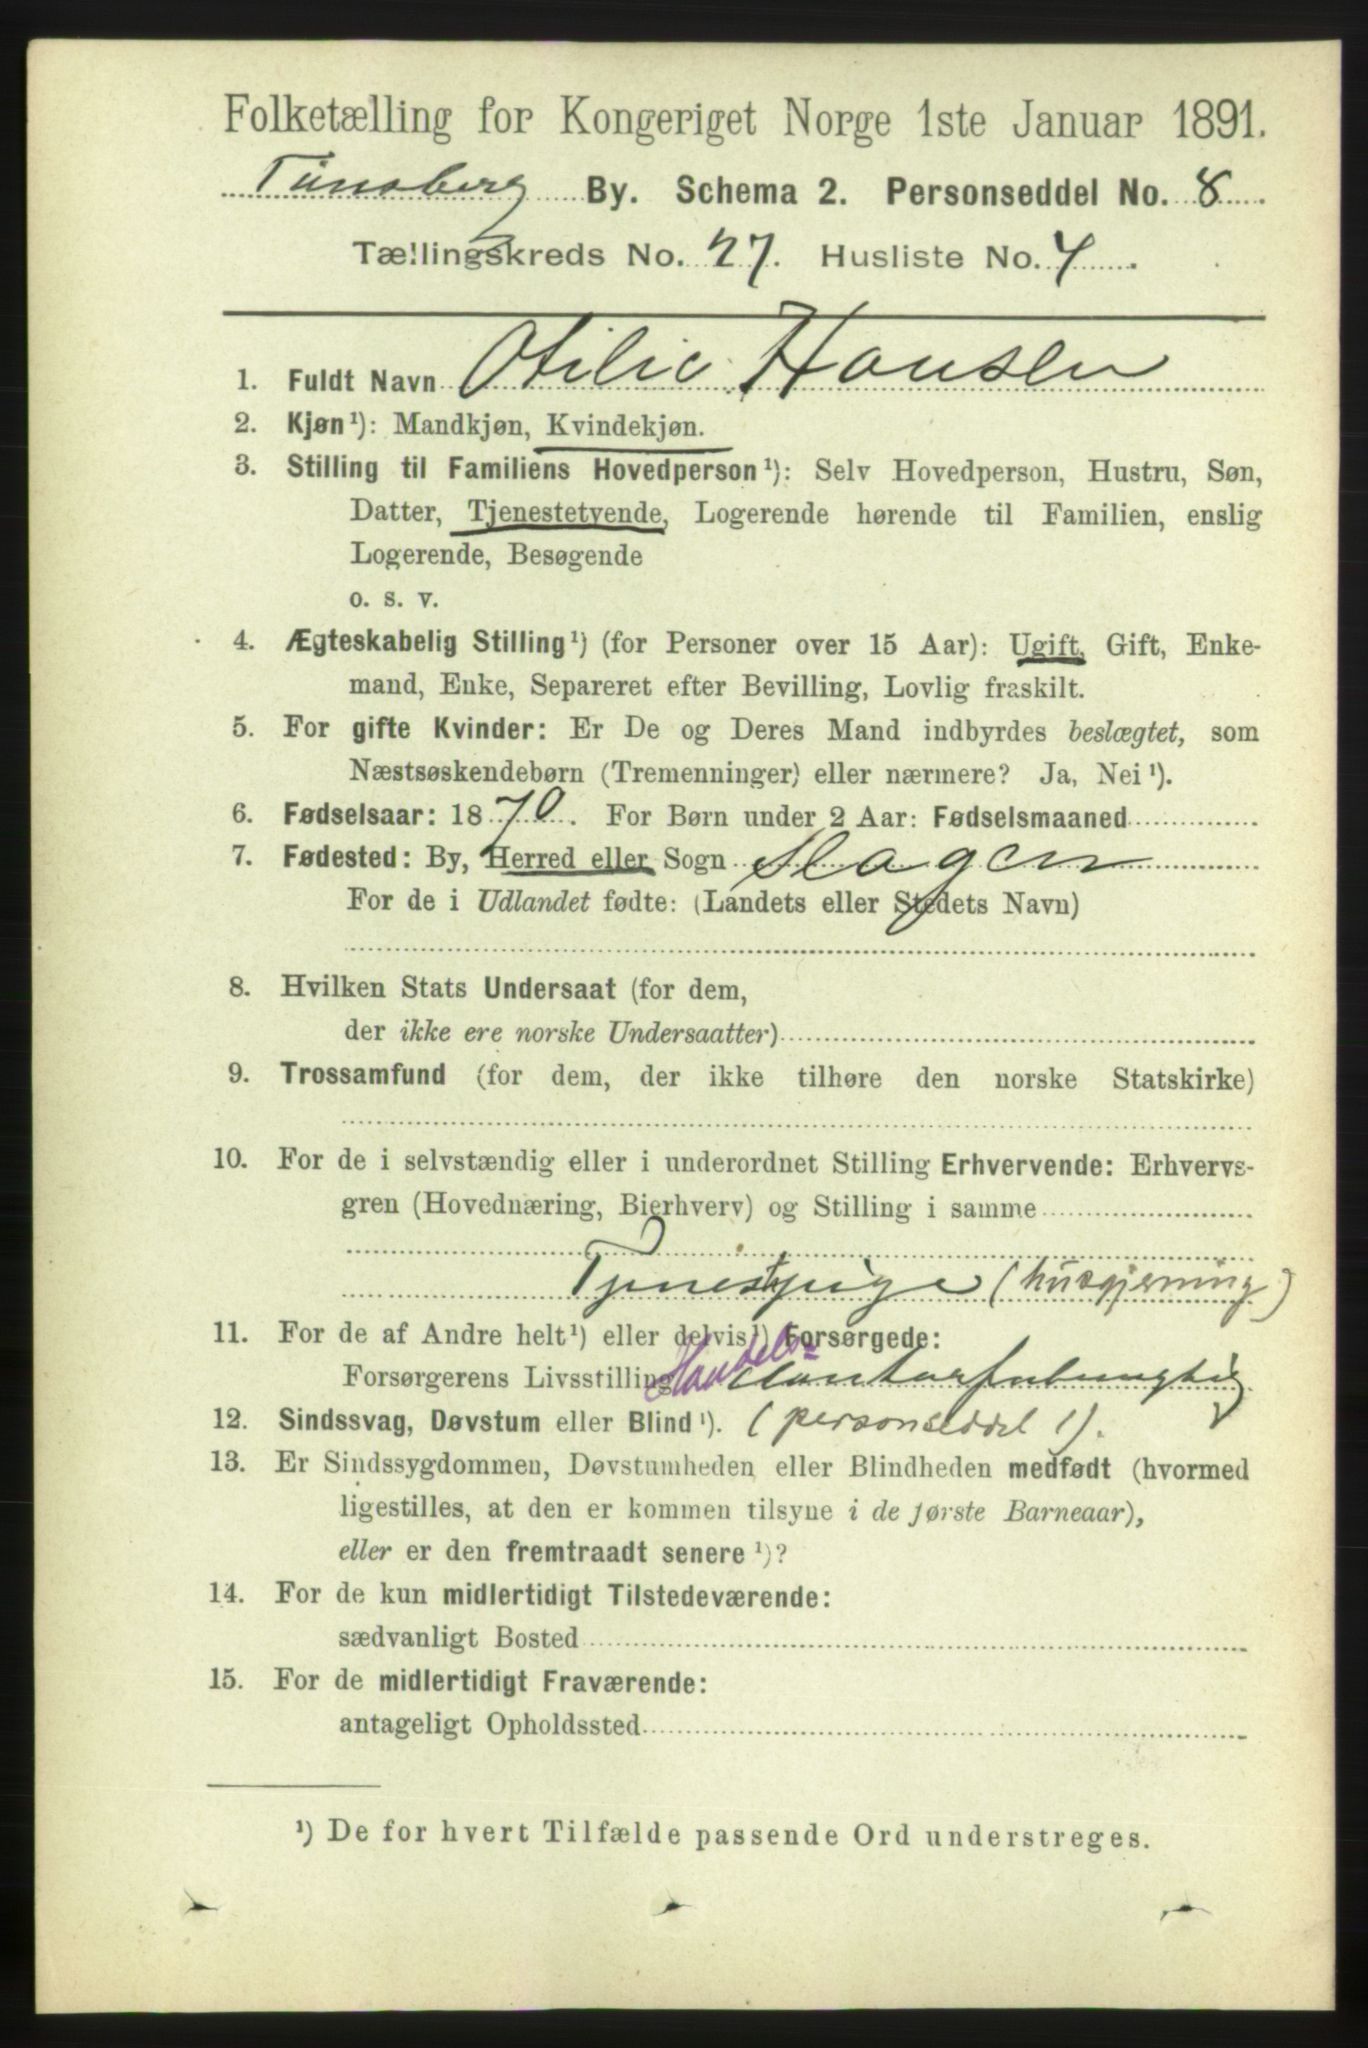 Folketælling for Kongeriget Norge 1ste Januar 1891.
Tünsberg By. Schema 2. Personseddel No. 8
Tællingskreds No. 27. Husliste No. 4
1. Fuldt Navn Otilie Hansen
2. Kjøn¹): Mandkjøn, Kvindekjøn.
3. Stilling til Familiens Hovedperson¹): Selv Hovedperson, Hustru, Søn,
Datter, Tjenestetyende, Logerende hørende til Familien, enslig
Logerende, Besøgende
o. s. v.
4. Ægteskabelig Stilling¹) (for Personer over 15 Aar): Ugift, Gift, Enke-
mand, Enke, Separeret efter Bevilling, Lovlig fraskilt.
5. For gifte Kvinder: Er De og Deres Mand indbyrdes beslægtet, som
Næstsøskendebørn (Tremenninger) eller nærmere? Ja, Nei¹).
6. Fødselsaar: 1870. For Børn under 2 Aar: Fødselsmaaned
7. Fødested: By, Herred eller Sogn Slagen
For de i Udlandet fødte: (Landets eller Stedets Navn)
8. Hvilken Stats Undersaat (for dem,
der ikke ere norske Undersaatter)
9. Trossamfund (for dem, der ikke tilhøre den norske Statskirke)
10. For de i selvstændig eller i underordnet Stilling Erhvervende: Erhvervs-
gren (Hovednæring, Bierhverv) og Stilling i samme
Tjenestpige (husgjerning)
11. For de af Andre helt¹) eller delvis¹) Forsørgede:
Forsørgerens Livsstilling Handels=
12. Sindssvag, Døvstum eller Blind¹). (personseddel 1).
13. Er Sindssygdommen, Døvstumheden eller Blindheden medfødt (hvormed
ligestilles, at den er kommen tilsyne i de første Barneaar),
eller er den fremtraadt senere¹)?
14. For de kun midlertidigt Tilstedeværende:
sædvanligt Bosted
15. For de midlertidigt Fraværende:
antageligt Opholdssted
¹) De for hvert Tilfælde passende Ord understreges.